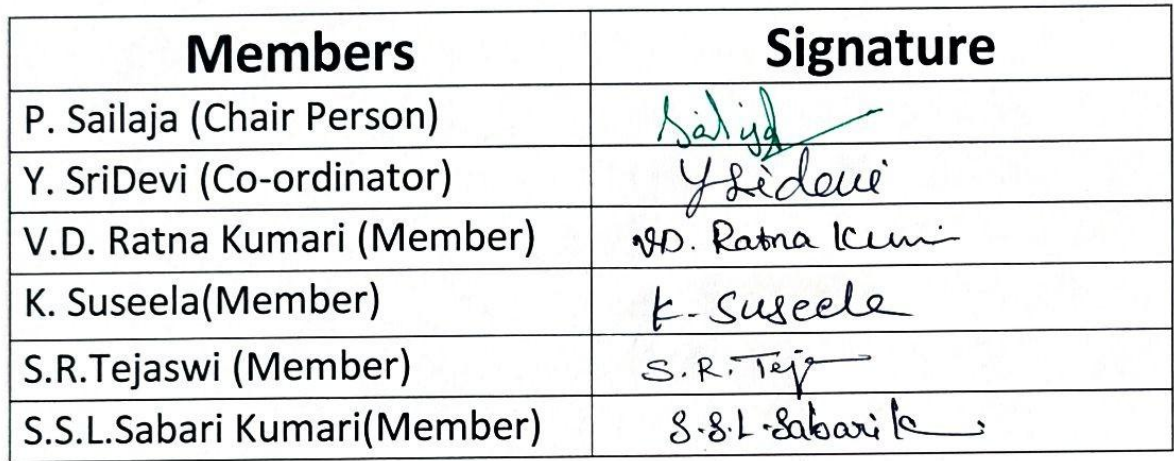 Members Signature
P. Sailaja (Chair Person) Sailaja
Y. SriDevi (Co-ordinator) Y Sridevi
V.D. Ratna Kumari (Member) VD. Ratna Kumari
K. Suseela(Member) K. Suseela
S.R.Tejaswi (Member) S.R. Tej
S.S.L.Sabari Kumari(Member) S.S.L.Sabari K